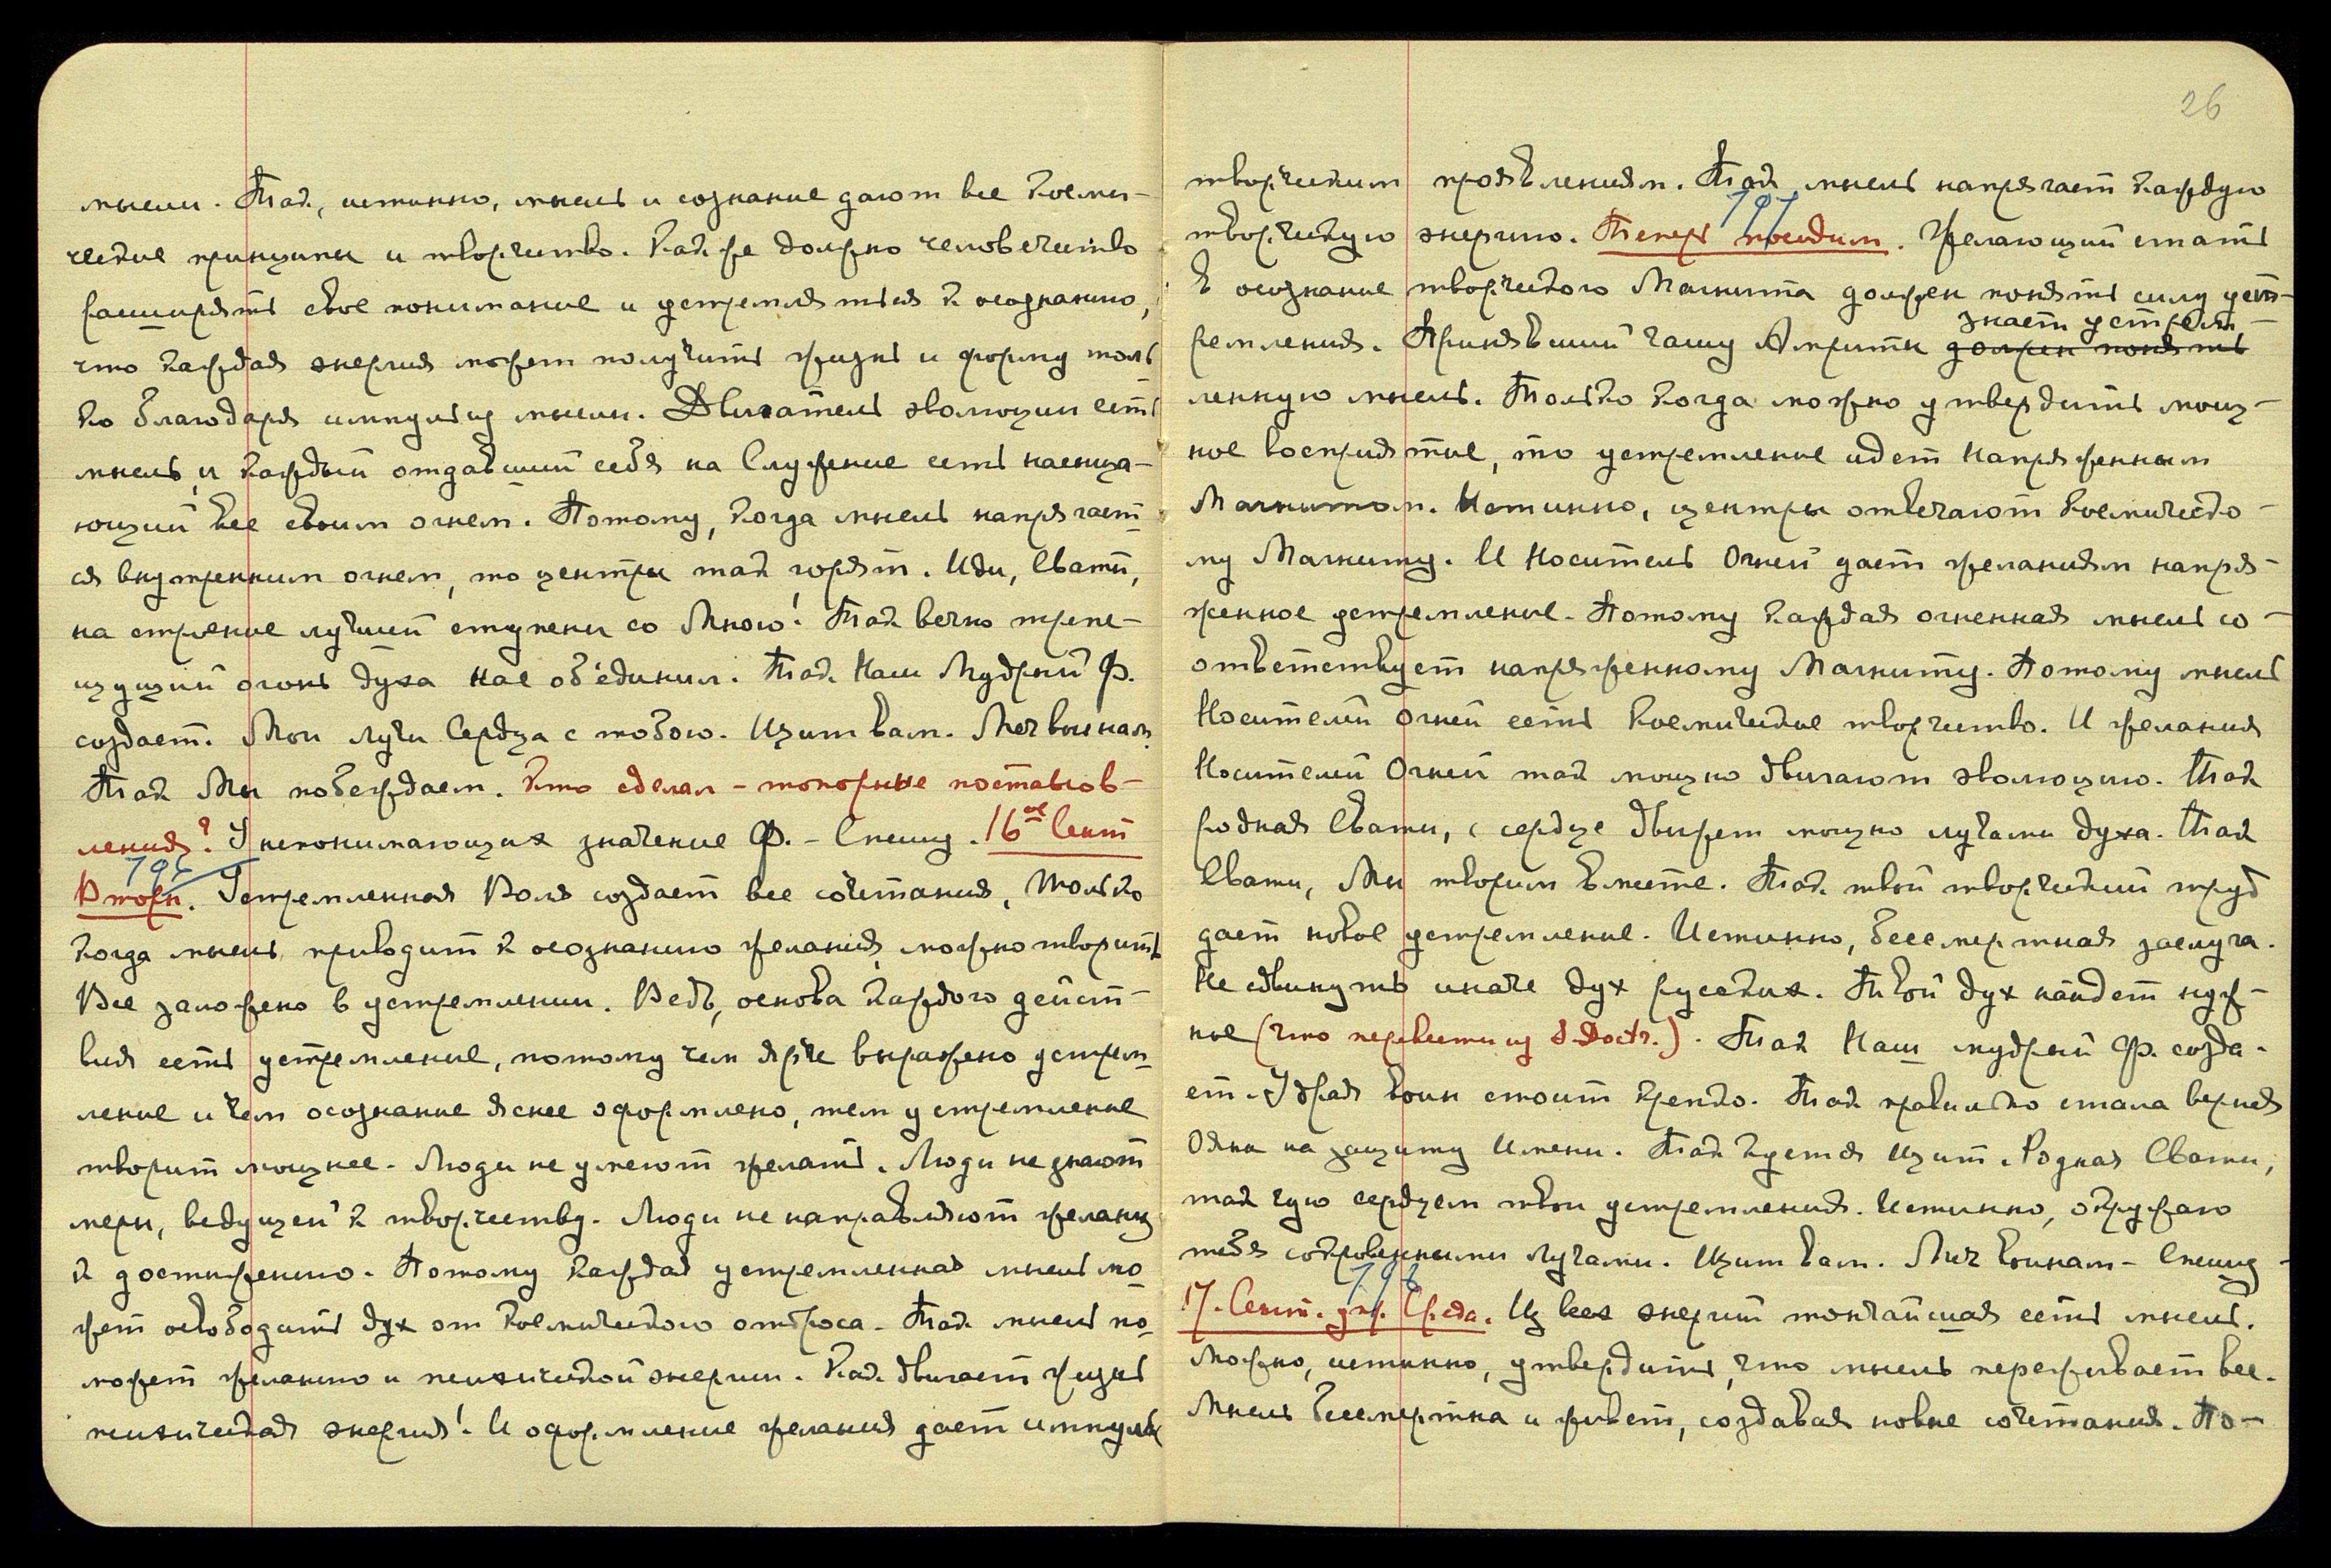 мысли. Так, истинно, мысль и сознание дают все косми-
ческие принципы и творчество. Как же должно человечество
расширять свое понимание и устремляться к осознанию,
что каждая энергия может получить жизнь и форму толь
ко благодаря импульсу мысли. Двигатель эволюции есть
мысль, и каждый отдавший себя на Служение есть насыща-
ющий все своим огнем. Потому, когда мысль напрягает
ся внутренним огнем, то центры так горят. Иди, Свати,
на строение лучшей ступени со Мною! Так вечно трепе-
щущий огонь духа нас об'единил. Так Наш Мудрый Ф.
создает. Мои лучи Сердца с тобою. Щит вам. Меч воинам.
Так Мы побеждаем. Кто сделал - топорные постановв-
ления? У непонимающих значение Ф. - Спешу. 16ое Сент
796
Вторн. Устремленная Воля создает все сочетания, только
когда мысль приводит к осознанию желания, можно творить
Все заложено в устремлении. Ведь, основа каждого дейст-
вия есть устремление, потому чем ярче выражено устрем
ление и чем осознание яснее оформлено, тем устремление
творит мощнее. Люди не умеют желать. Люди не знают
меры, ведущей к творчеству. Люди не направляют желания
к достижению. Потому каждая устремленная мысль мо
жет освободить дух от космического отброса. Так мысль по
может желанию и психической энергии. Как двигает жизнь
психическая энергия! И оформление желания дает импульс
26
творческим проявлениям. Так, мысль напрягает каждую
797
творческую энергию. Теперь посидим. Желающий стать
в осознание творческого Магнита должен понять силу уст-
знает устрем-
ремления. Принявший чашу Амриты должен понять
ленную мысль. Только когда можно утвердить мощ-
ное восприятие, то устремление идет напряженным
Магнитом. Истинно, центры отвечают Космическо-
му Магниту. И Носитель Огней дает желаниям напря-
женное устремление. Потому каждая огненная мысль со-
ответствует напряженному Магниту. Потому мысль
Носителей Огней есть космическое творчество. И желания
Носителей Огней так мощно двигают эволюцию. Так
родная Свати, сердце движет мощно лучами духа. Так
Свати, Мы творим вместе. Так твой творческий труд
дает новое устремление. Истинно, бессмертная заслуга.
Не сдвинуть иначе дух русских. Твой дух найдет нуж-
ное (что перевести из S. Doctr.). Так Наш мудрый Ф. созда-
ет. Удрая воин стоит крепко. Так правильно стала верная
Ояна на защиту Имени. Так куется Щит. Родная Свати,
так чую сердцем твои устремления. Истинно, окружаю
тебя сокровенными лучами. Щит вам. Меч воинам - Спешу -
798
17. Сент. Среда. Из всех энергий тончайшая есть мысль.
Можно, истинно, утвердить, что мысль переживает все.
Мысль бессмертна и живет, создавая новые сочетания. По-